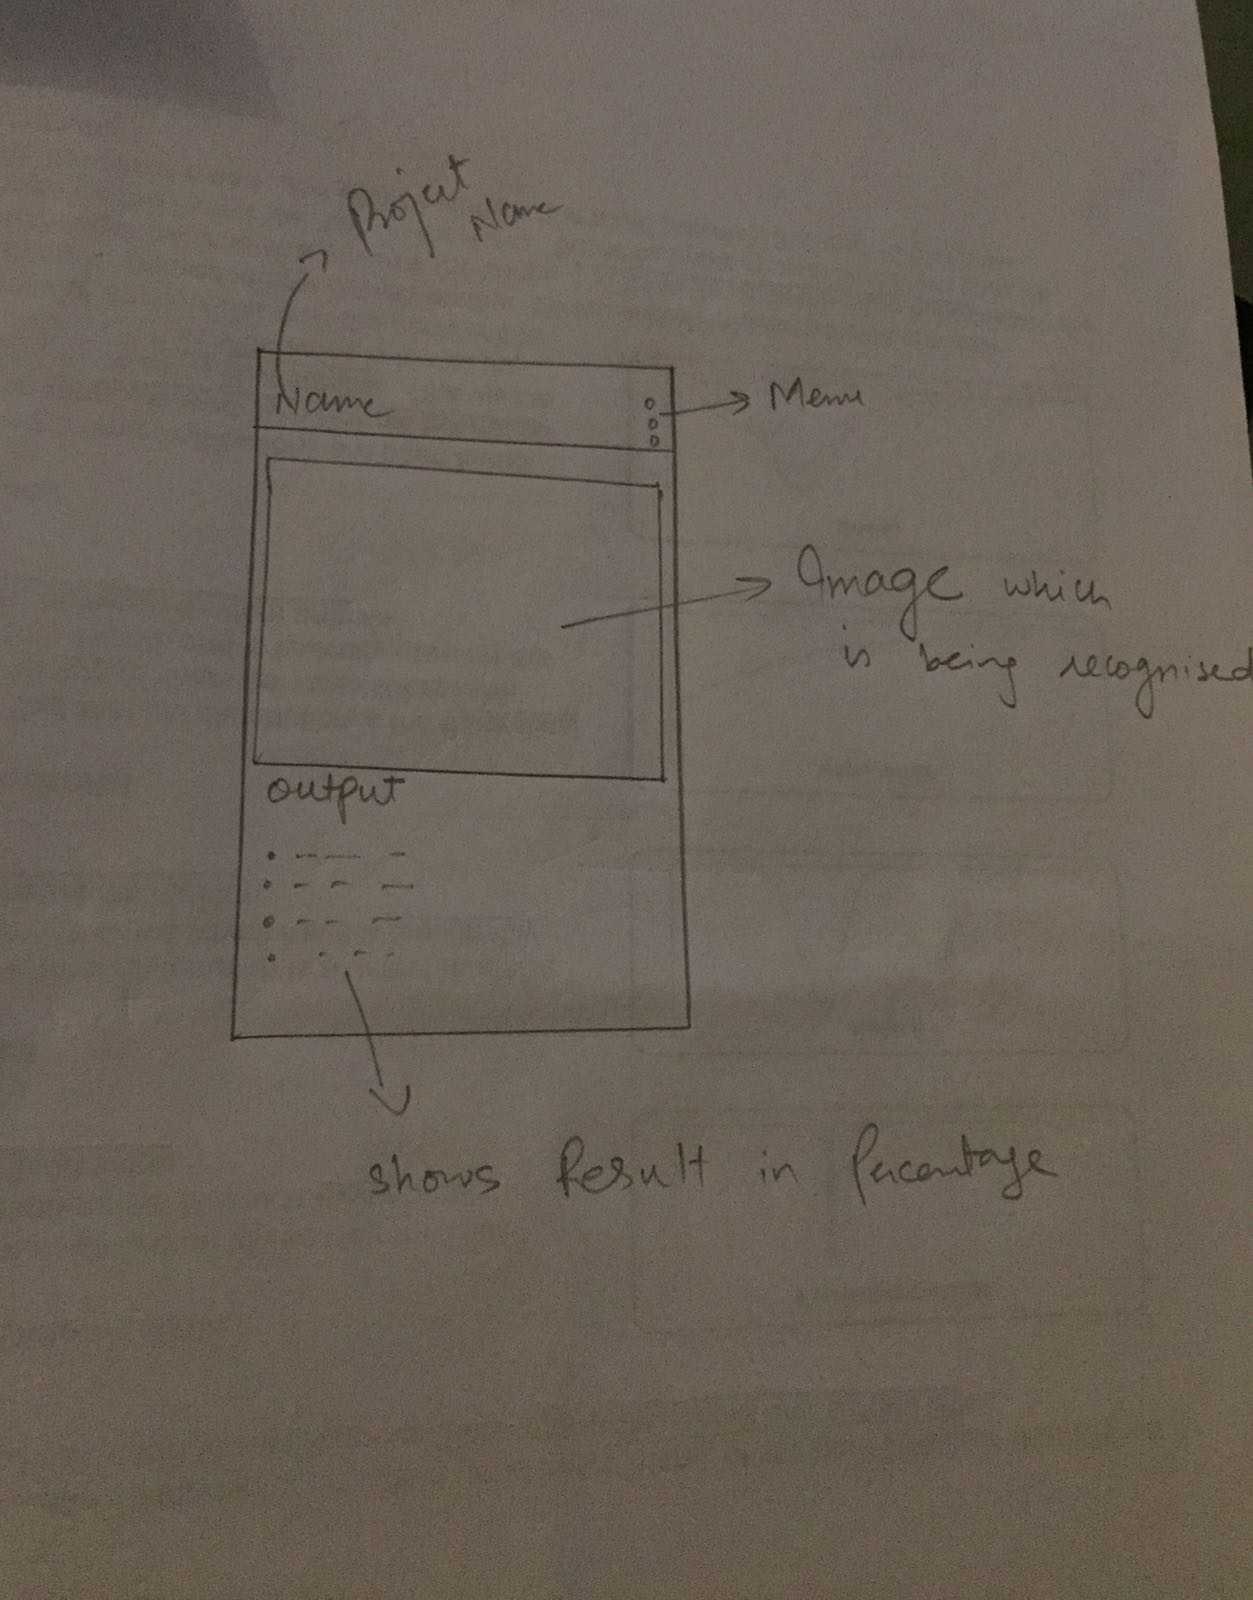 Project
Name
Name
Menu
Image which
is being recognised
output
shows Result in Percentage